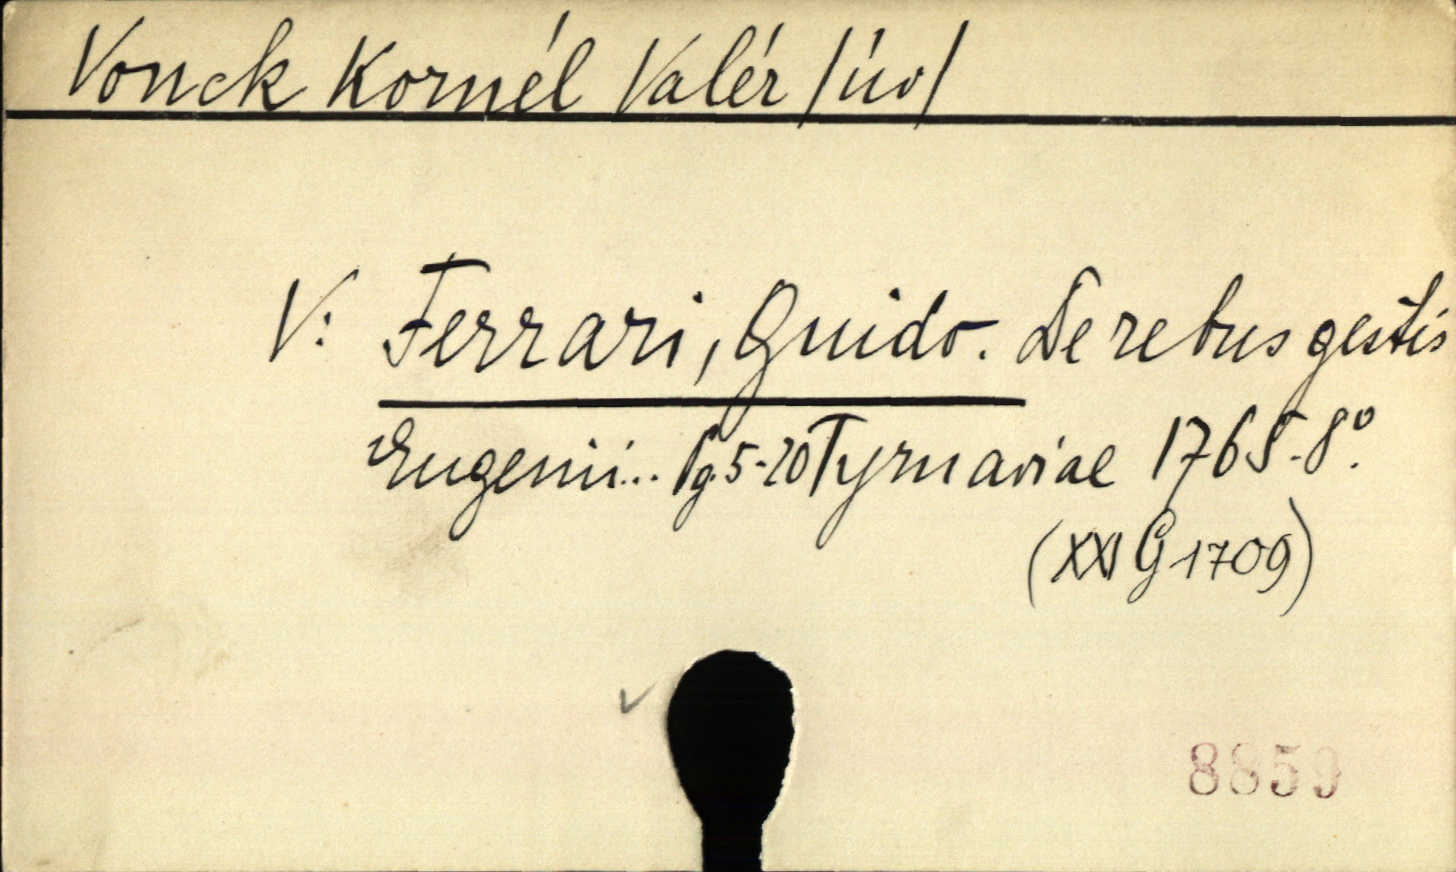 Vonck Kornél Valér /üv/
V: Ferrari, Guido. De rebus gestis
Eugenii... Pg. 5-20 Tyrnaviae 1765. 8°.
(XXI G 1709)
8859